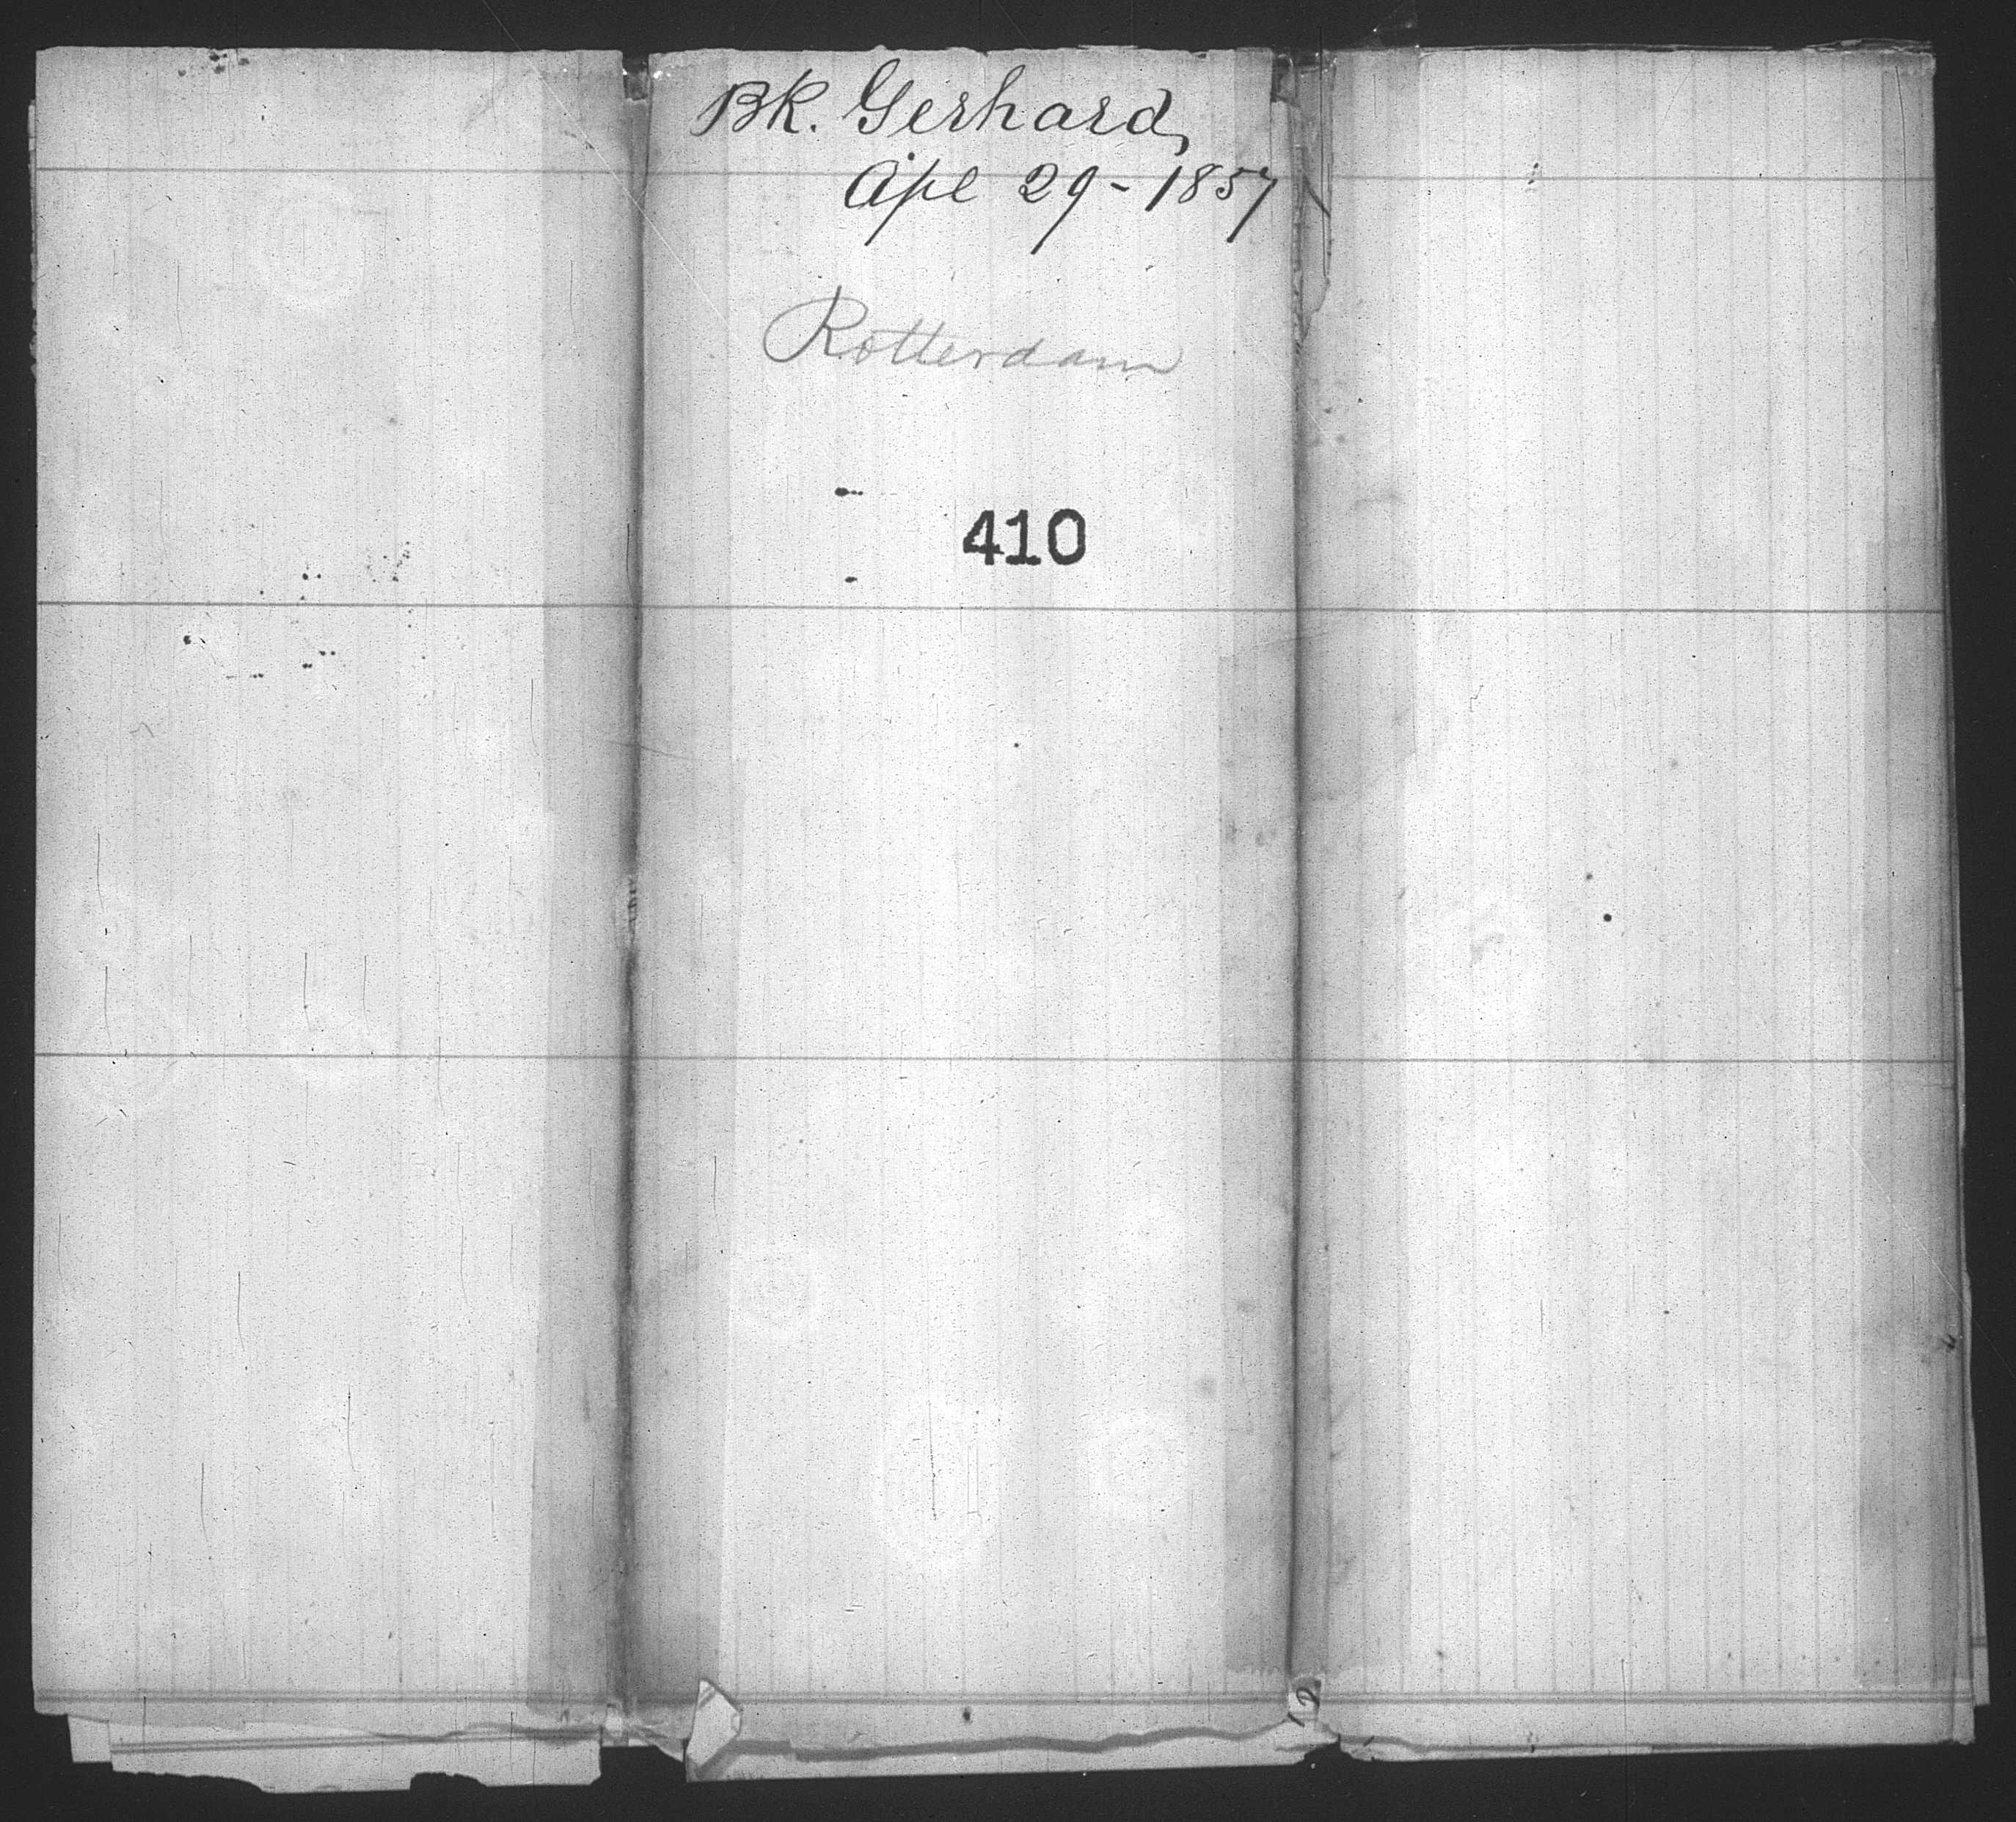 Bk. Gerhard,
Apl 29 - 1857
Rotterdam
410
12